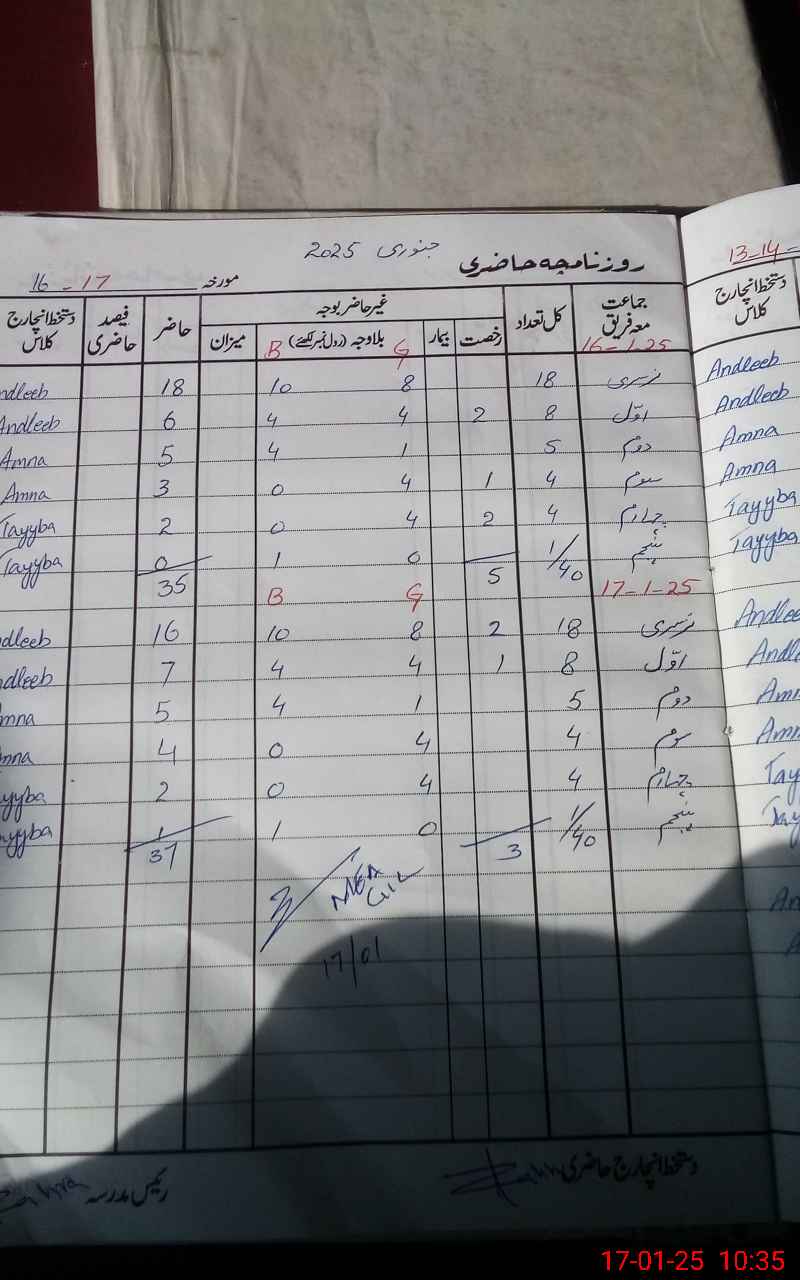 روزنامچہ حاضری جنوری 2025
مورخہ 17 - 16
جماعت معہ فریق کل تعداد غیر حاضر بوجہ حاضر فیصد حاضری دستخط انچارج کلاس
رخصت بیمار بلاوجہ (رول نمبر لکھئے) میزان
16-1-25 G B
نرسری 18 8 10 18 ndleeb
اوّل 8 2 4 4 6 Andleeb
دوم 5 1 4 5 Amna
سوم 4 1 4 0 3 Amna
چہارم 4 2 4 0 2 Tayyba
پنجم 1 0 1 0 Tayyba
40 5 35
17-1-25 G B
نرسری 18 2 8 10 16 dleeb
اوّل 8 1 4 4 7 dleeb
دوم 5 1 4 5 mna
سوم 4 4 0 4 mna
چہارم 4 4 0 2 yyba
پنجم 1 0 1 1 ayyba
40 3 37
MEA
GIL
17/01
دستخط انچارج حاضری
رئیس مدرسہ
13-14 -
دستخط انچارج کلاس
Andleeb
Andleeb
Amna
Amna
Tayyba
Tayyba
Andlee
Andl
Am
Amn
Tay
Tay
An
A
17-01-25 10:35